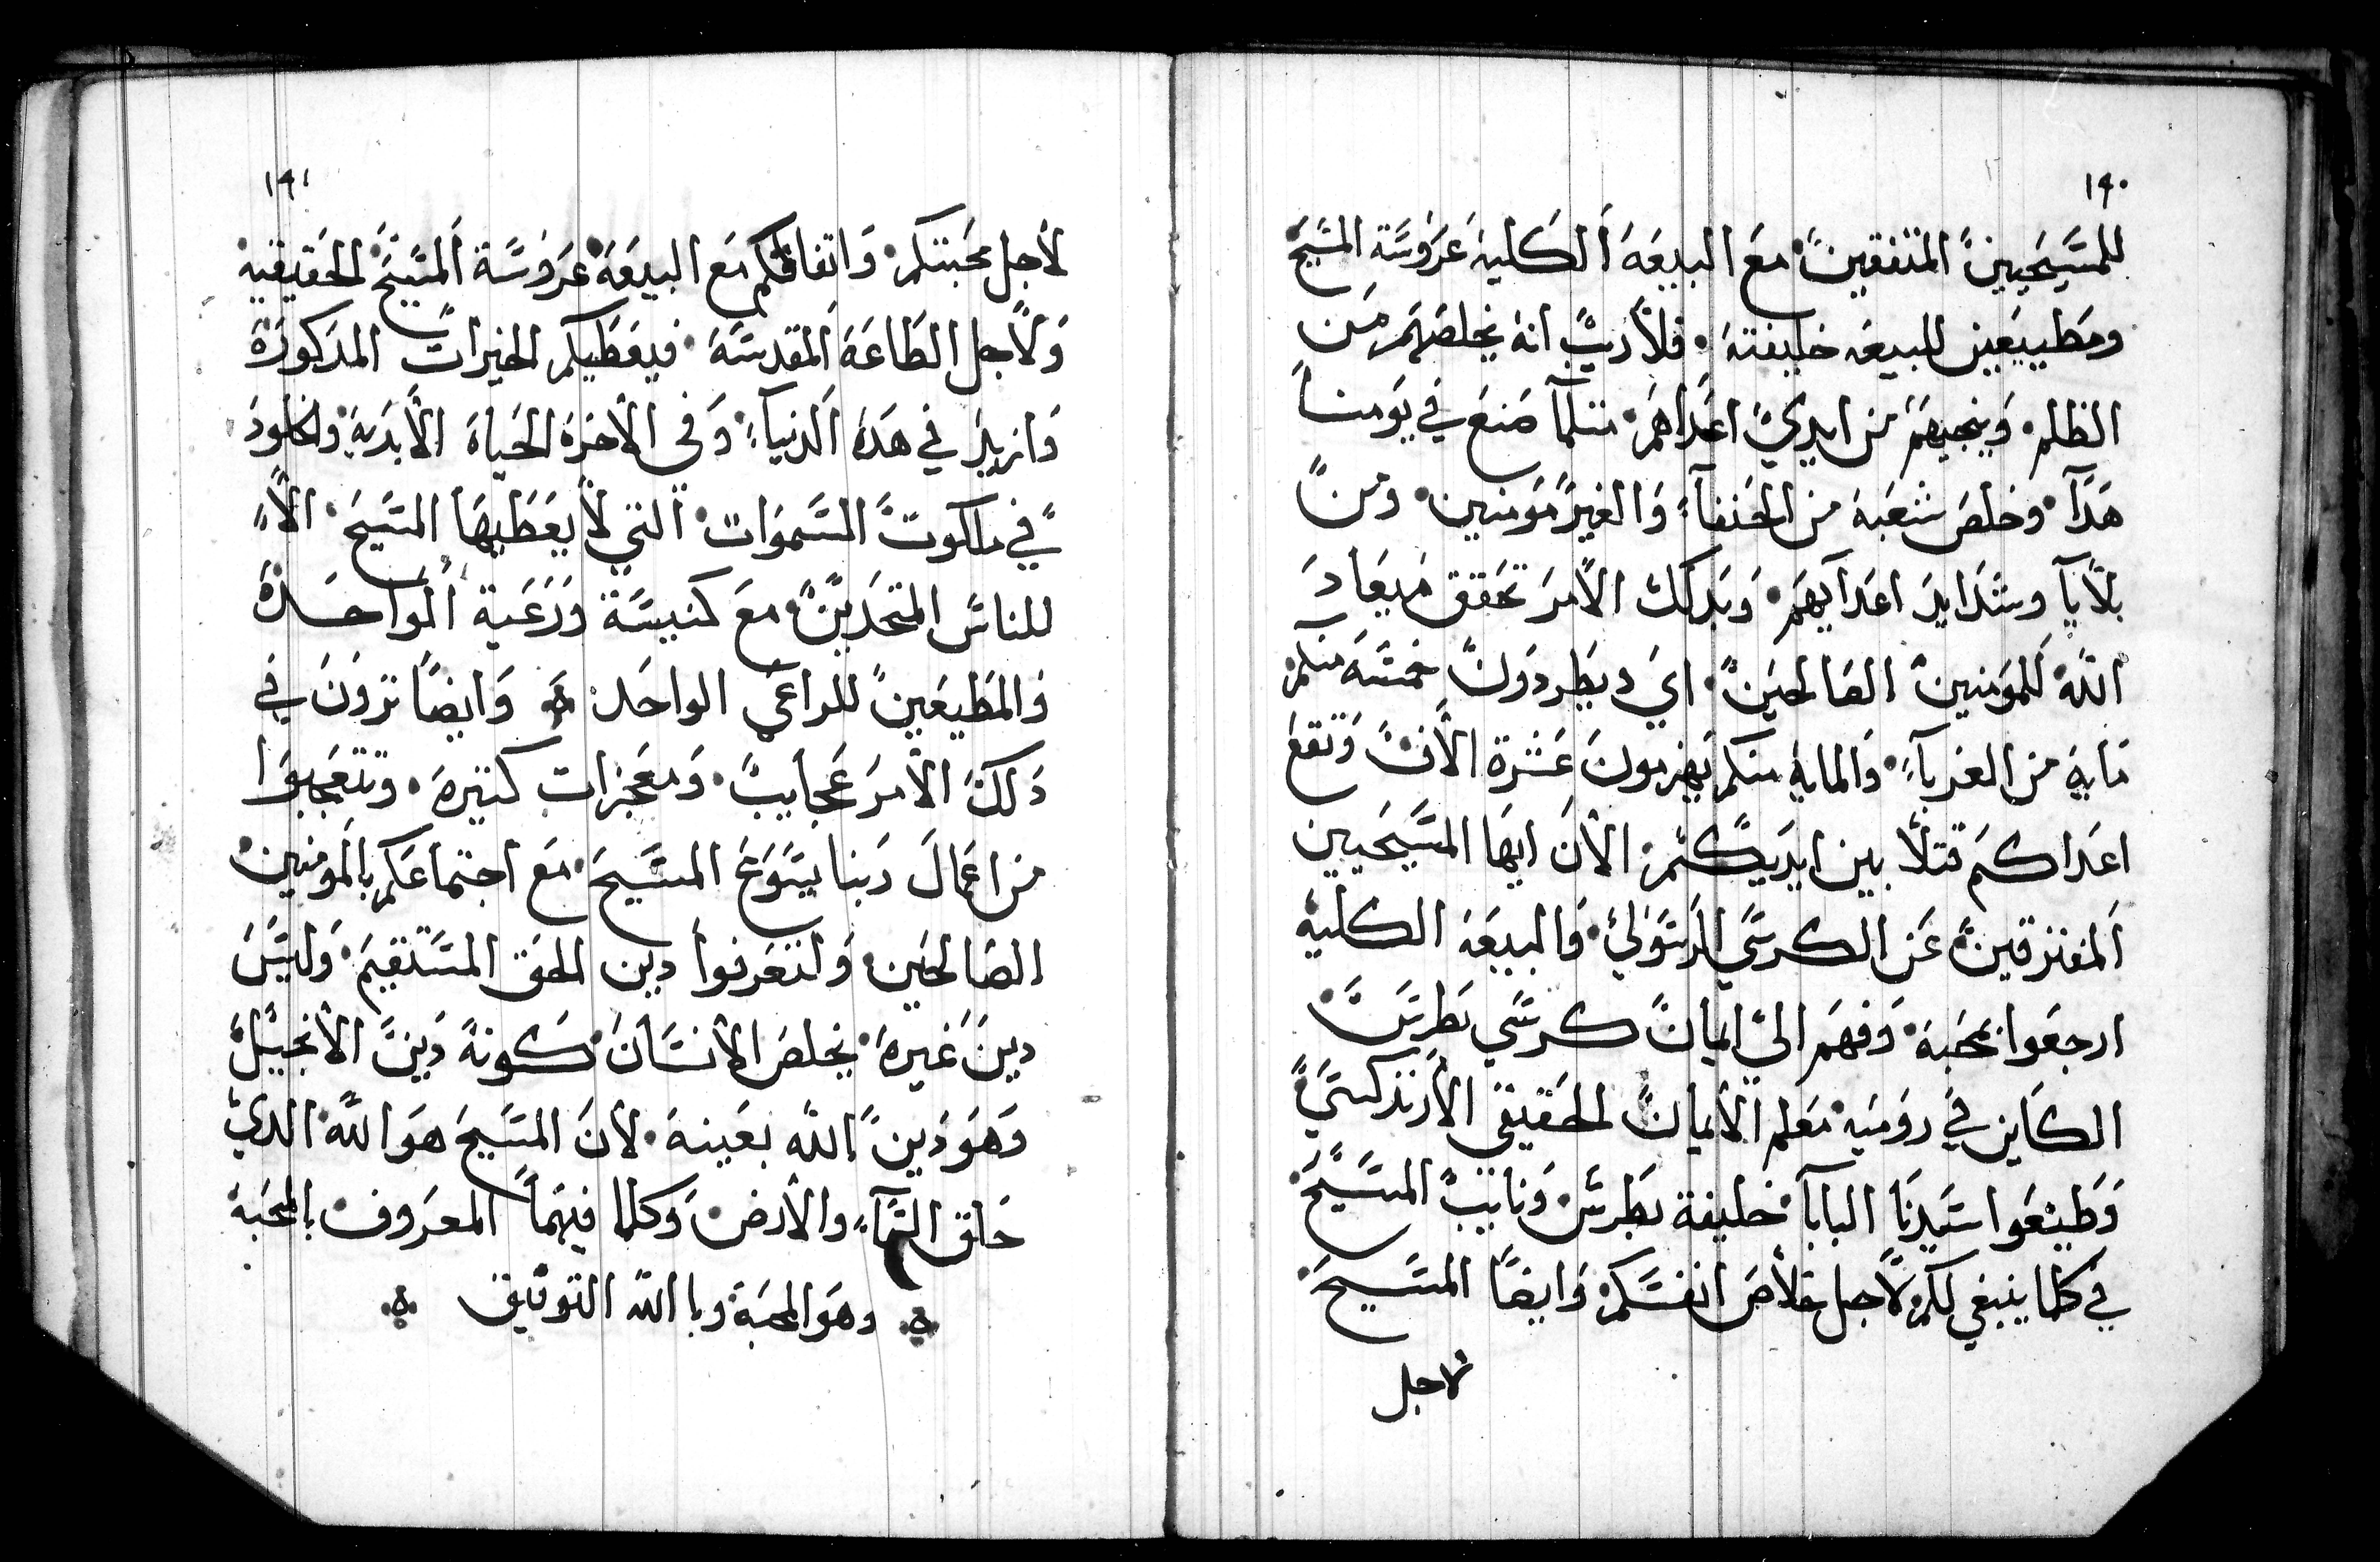 ١٩٠
للمسيحيين المتفقين مع البيعه الكليه عروسة المسيح
ومطيعين للبيعه خليفته فلا ريب انه يخلصهم من
الظلم وينجيهم من ايدي اعداهم متلما صنع في يومنا
هدا وخلص شعبه من الحنفاء والغير مومنين ومن
بلايا وشدايد اعدايهم وبدلك الامر تحقق ميعاد
الله للمومنين الصالحين اي ويطردون خمسه منكم
مايه من الغرباء والمايه منكم يهزمون عشرة الاف وتقع
اعداكم قتلا بين ايديكم الان ايها المسيحيين
المفترقين عن الكرسي الرسولي والبيعه الكليه
ارجعوا بمحبه وفهم الى ايمان كرسي بطرس
الكاين في روميه معلم الايمان الحقيقي الارتدكسي
وطيعوا سيدنا البابا خليفة بطرس ونايب المسيح
في كلما ينبغي لكم لاجل خلاص انفسكم وايضا المسيح
لاجل
١٩١
لاجل محبتكم واتفاقكم مع البيعه عروسة المسيح الحقيقيه
ولاجل الطاعه المقدسه فيعطيكم الخيرات المدكورة
وازيد في هده الدنيا وفي الاخره الحياه الابديه والخلود
في ملكوت السموات التي لا يعطيها المسيح الا
للناس المتحدين مع كنيسة ورعية الواحده
والمطيعين للراعي الواحد وايضا ترون في
دلك الامر عجايب ومعجزات كتيره وتتعجبوا
من اعمال ربنا يسوع المسيح مع اجتماعكم بالمومنين
الصالحين ولتعرفوا دين الحق المستقيم وليس
دين غيره يخلص الانسان كونه دين الانجيل
وهو دين الله بعينه لان المسيح هو الله الدي
خلق السماء والارض وكلما فيهما المعروف بالمحبه
وهو المحبه وبا الله التوفيق